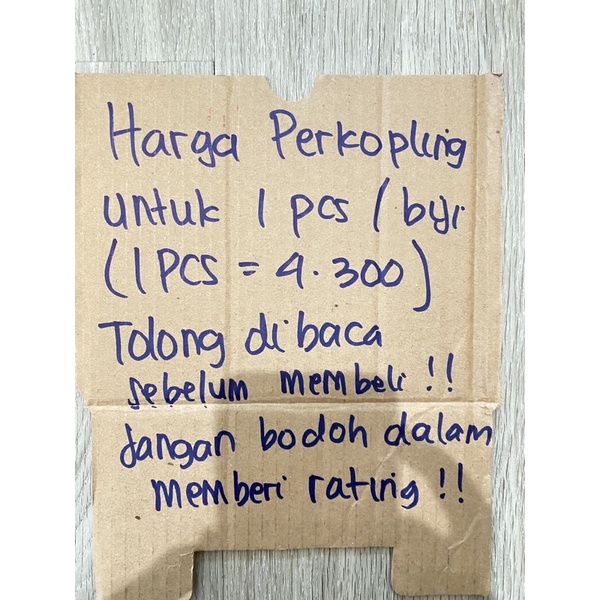 Harga Perkopling
untuk 1 pcs / biji
(1 PCS = 4.300)
Tolong dibaca
sebelum membeli !!
Jangan bodoh dalam
memberi rating !!